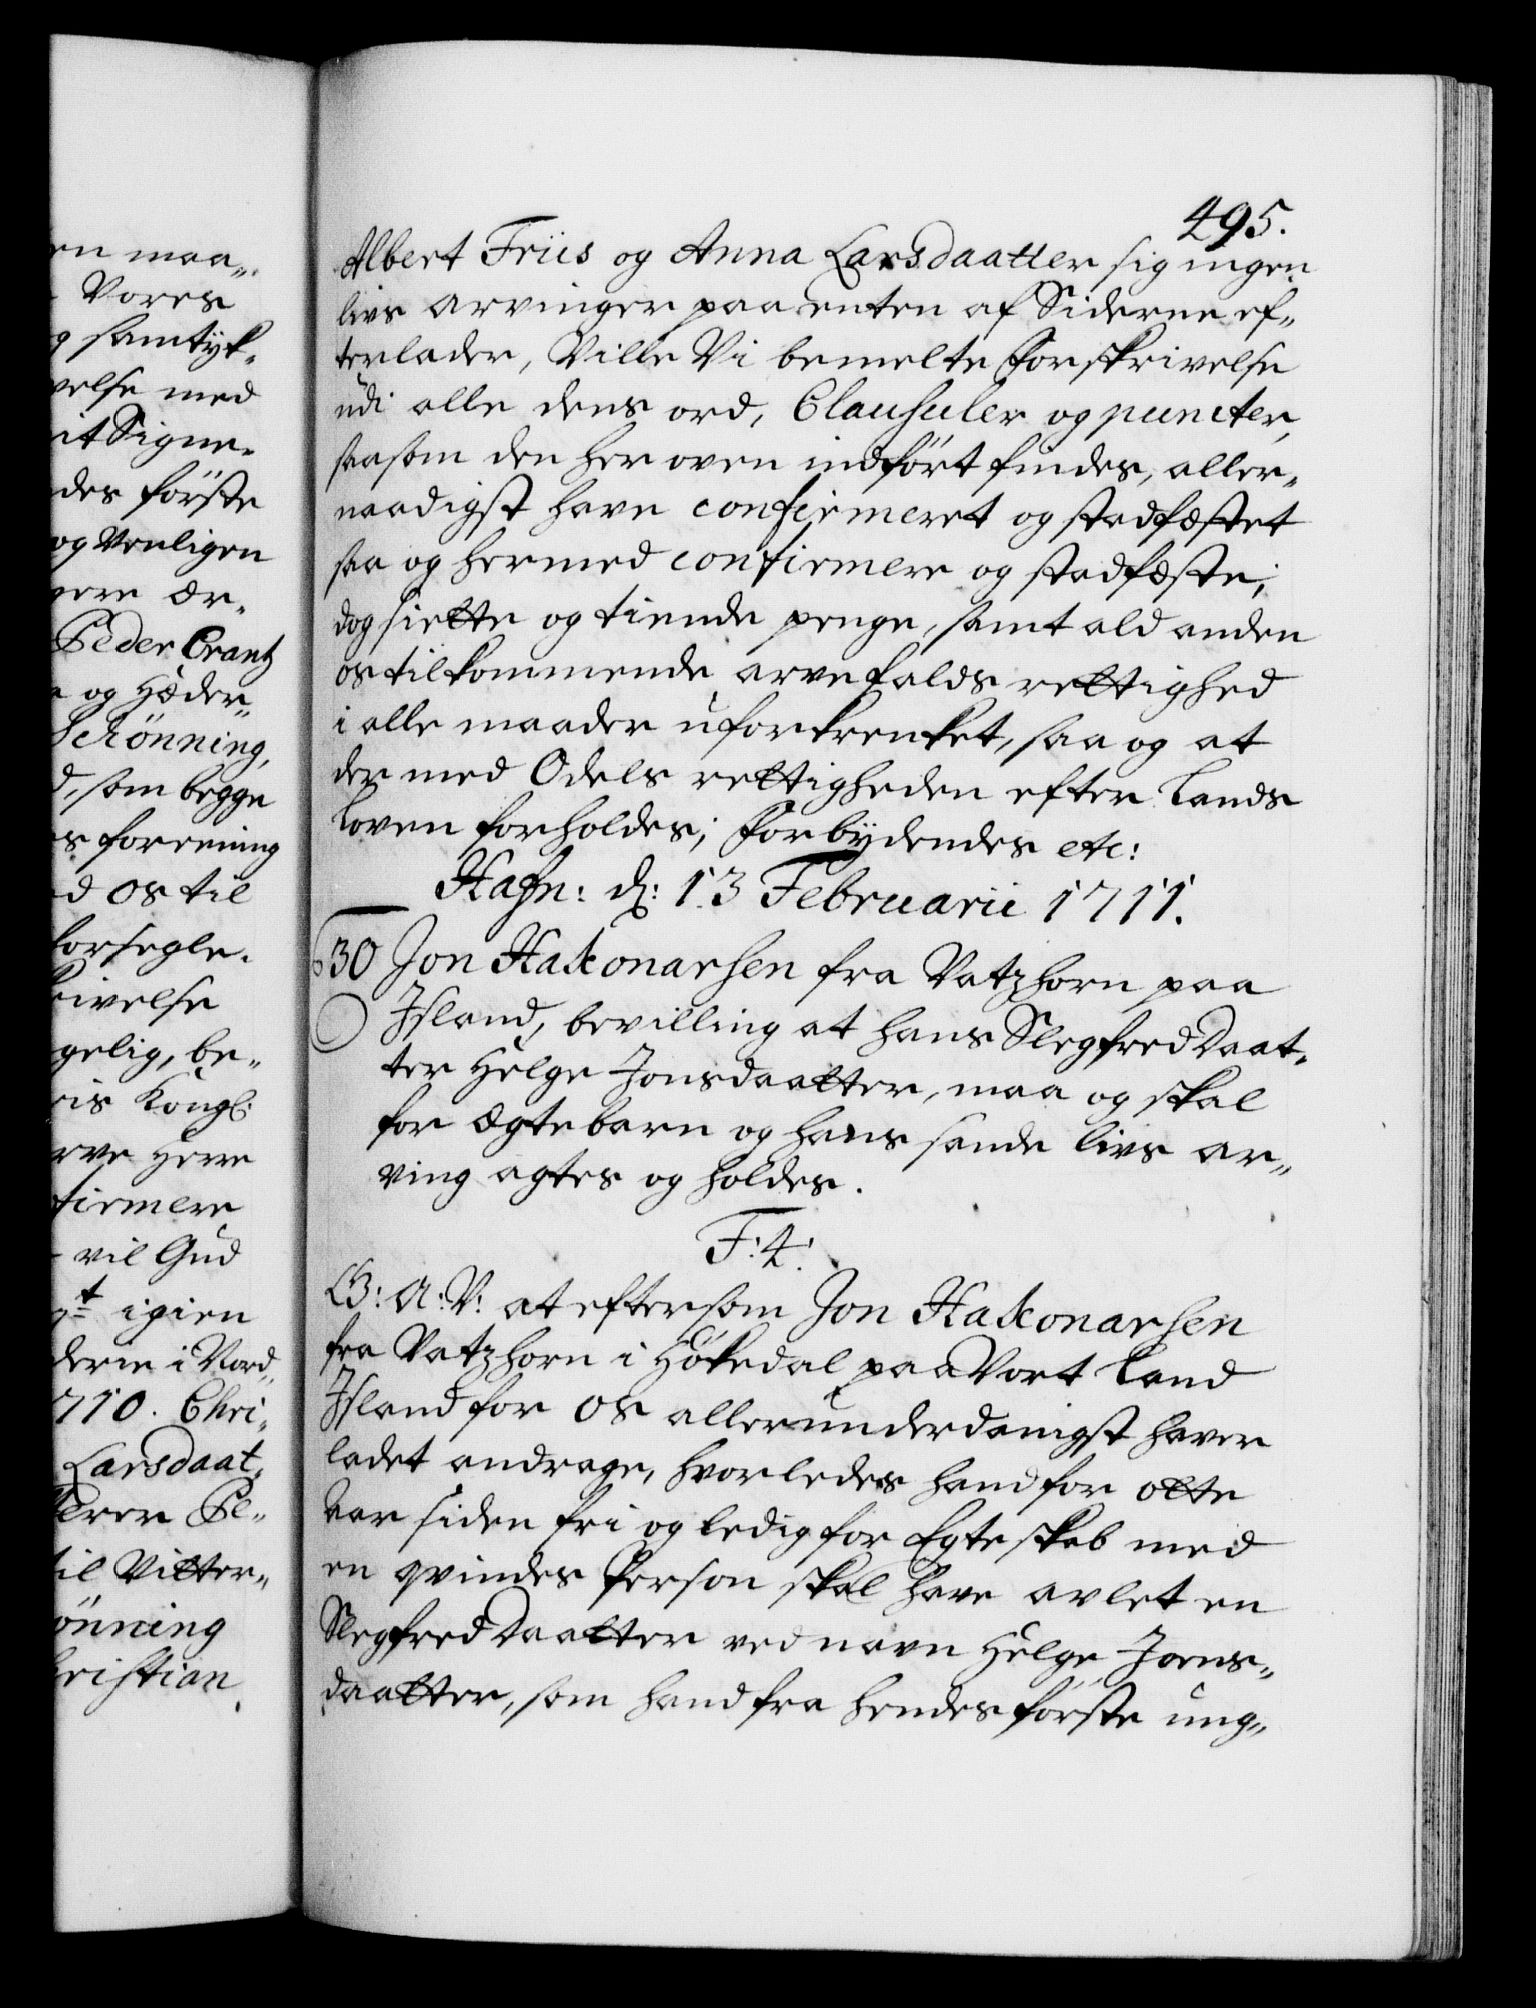 en maa„
Vores
g samtyk„
velse med
it Signe„
des förste
og Venligen
gere ær„
Peder Crantz
e og Hæder„
Schönning,
d, som begge
s forening
d os til
forsegle„
krivelse
gelig, be„
ris Kongl:
rve Herre
firmere
vil Gud
igien
derne i Nord„
710. Chri„
Larsdaat„
Pe„
til Vitter„
önning
hristian
495.
Albert Friis og Anna Larsdaatter sig ingen
livs arvinger paa enten af Siderne ef„
terlader, Ville Vi bemelte Forskrivelse
udi alle dens ord, Clausuler og puncter,
saasom den her oven indført findes, aller„
naadigst have confirmeret og stadfæstet
saa og hermed confirmere og stadfæste;
dog siette og tiende penge, samt ald anden
os tilkommende arvefalds rettighed
i alle maader uforkrenket, saa og at
der med Odels rettigheden efter Lands
Loven forholdes; Forbydendes etc:
Hafn: d: 13 Februarii 1711.
30 Jon Hakonarsen fra Vatzhorn paa
Island, bevilling at hans Slegfred Daat„
ter Helge Jonsdaatter, maa og skal
for Ægte barn og hans sande livs ar„
ving agtes og holdes.
F: 4:
G: A: V: at eftersom Jon Hakonarsen
fra Vatzhorn i Høkedal paa Vort Land
Island for os allerunderdanigst haver
ladet andrage, hvorledes hand for otte
aar siden fri og ledig for Egteskab med
en qvindes Person skal have avlet en
Slegfred Daatter ved navn Helge Joens„
daatter, som hand fra hendes förste ung„